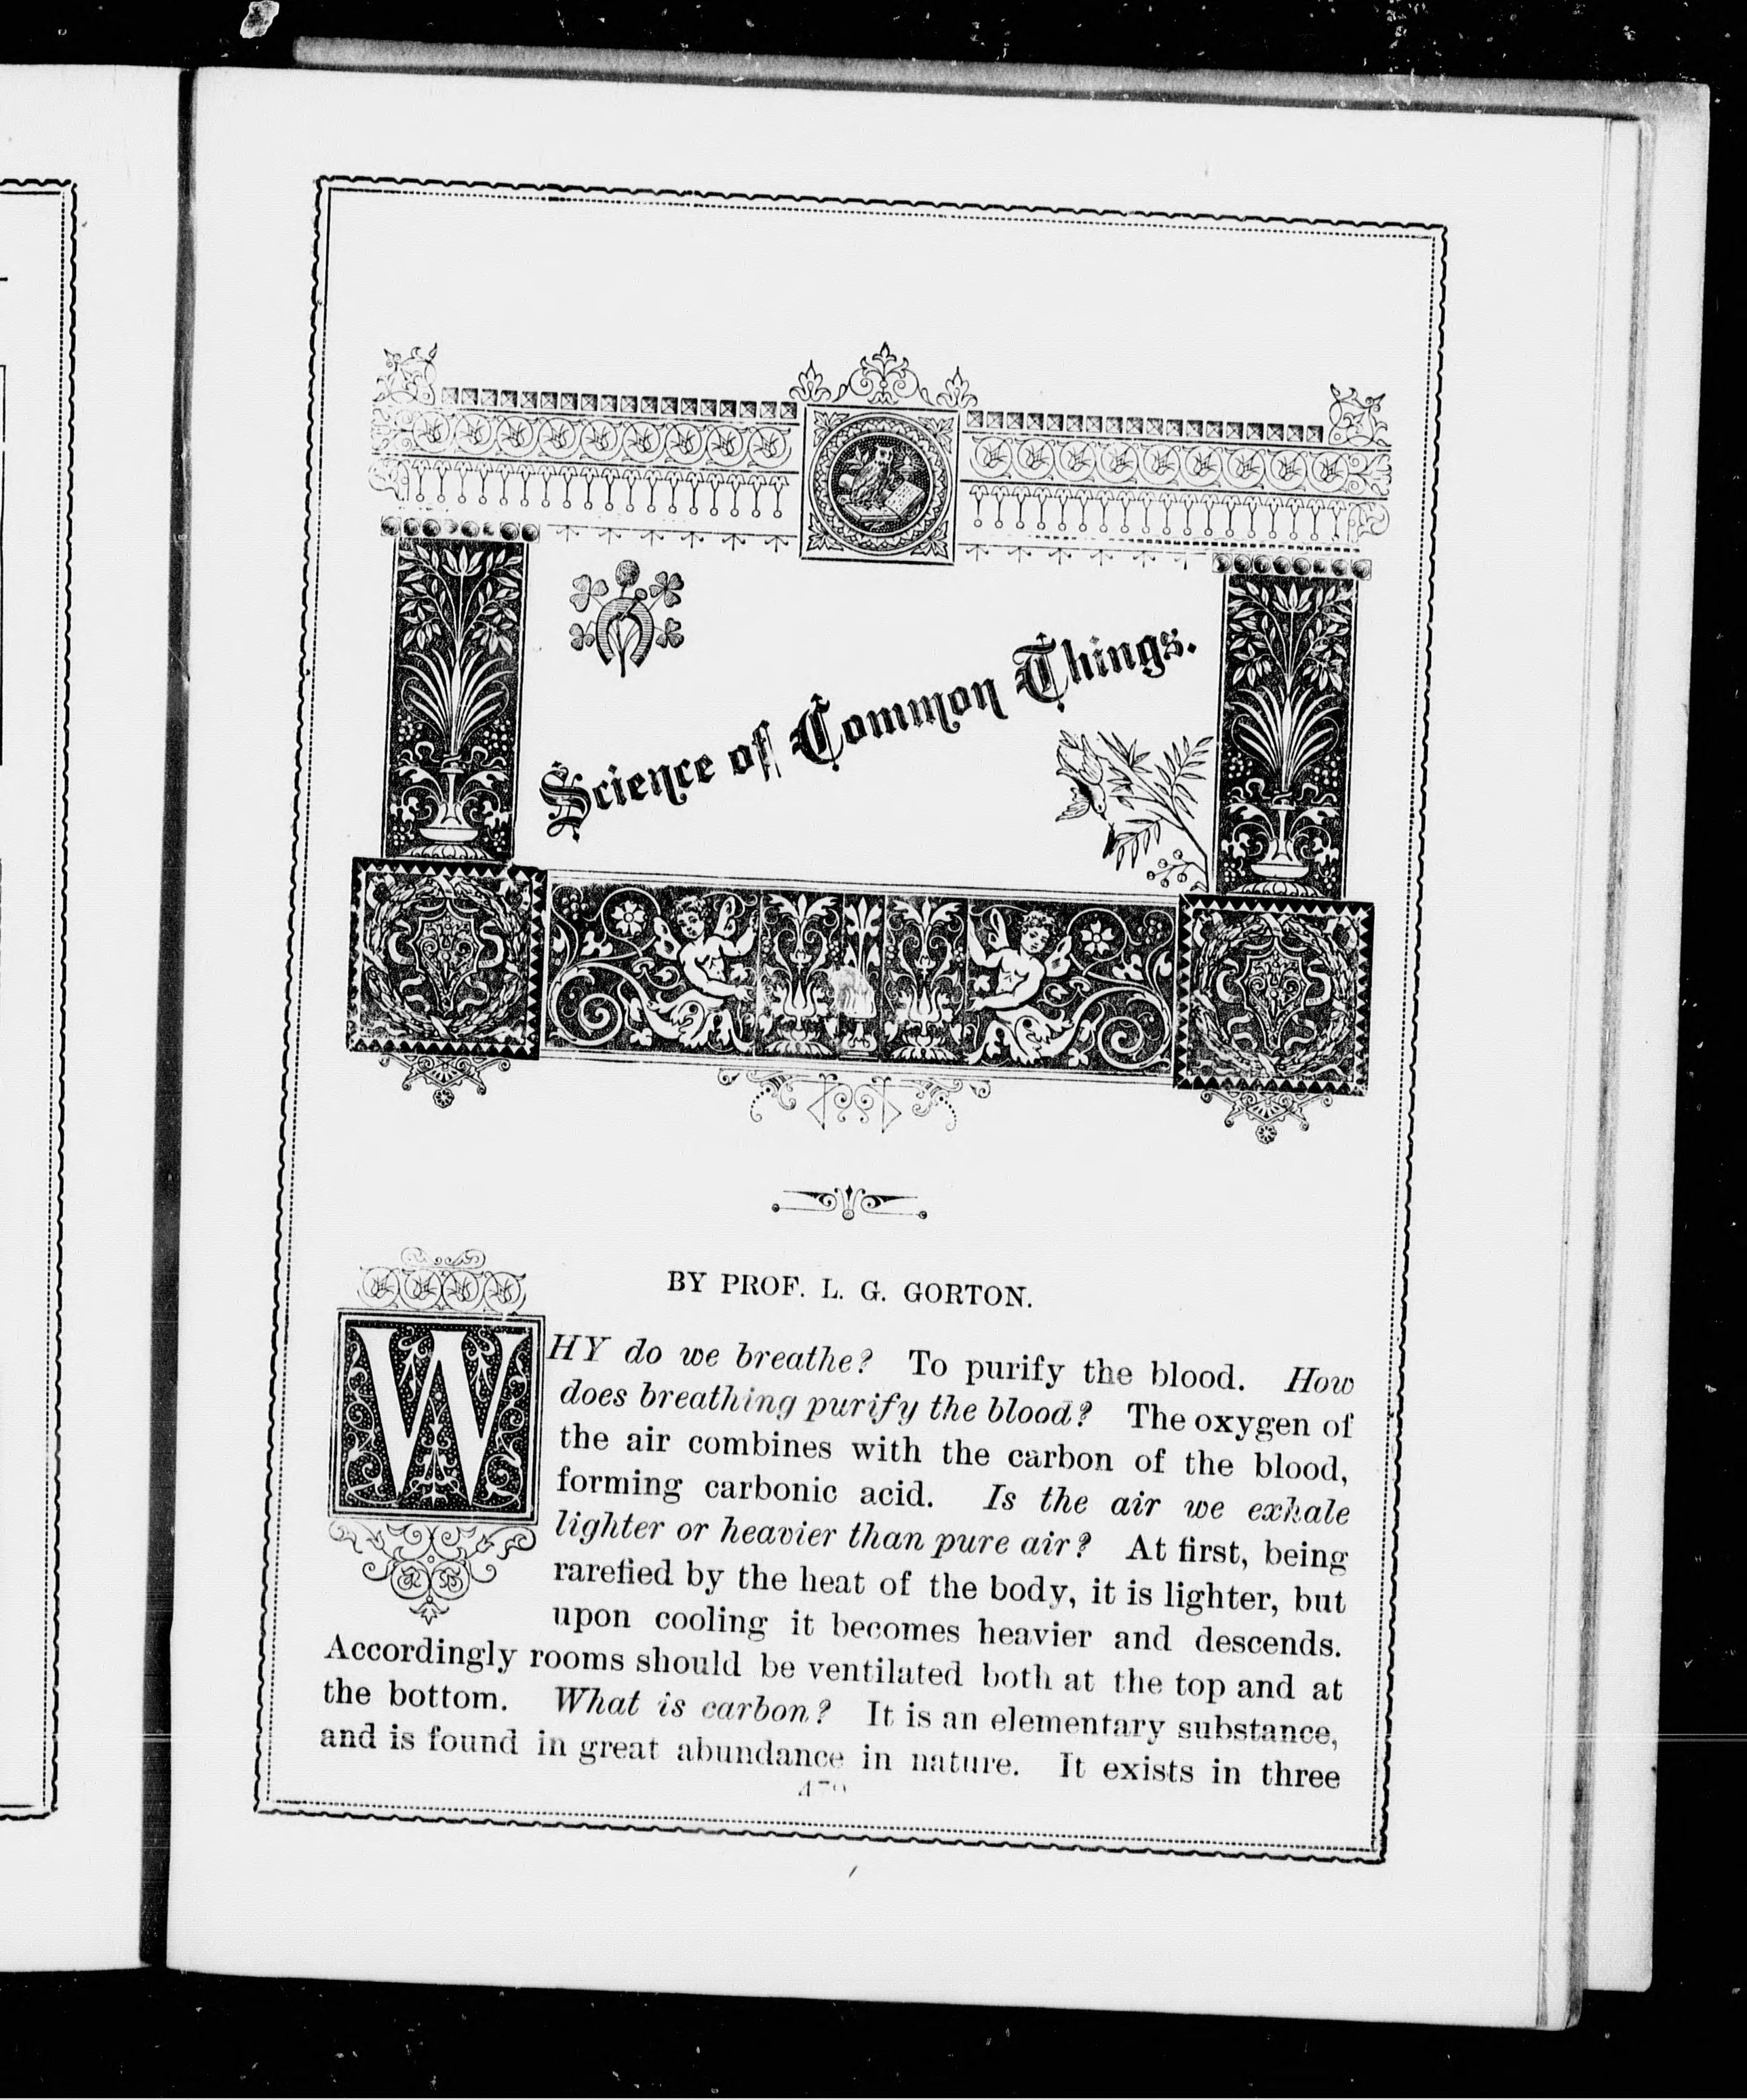 Science of Common Things.
BY PROF. L. G. GORTON.
WHY do we breathe? To purify the blood. How
does breathing purify the blood? The oxygen of
the air combines with the carbon of the blood,
forming carbonic acid. Is the air we exhale
lighter or heavier than pure air? At first, being
rarefied by the heat of the body, it is lighter, but
upon cooling it becomes heavier and descends.
Accordingly rooms should be ventilated both at the top and at
the bottom. What is carbon? It is an elementary substance,
and is found in great abundance in nature. It exists in three